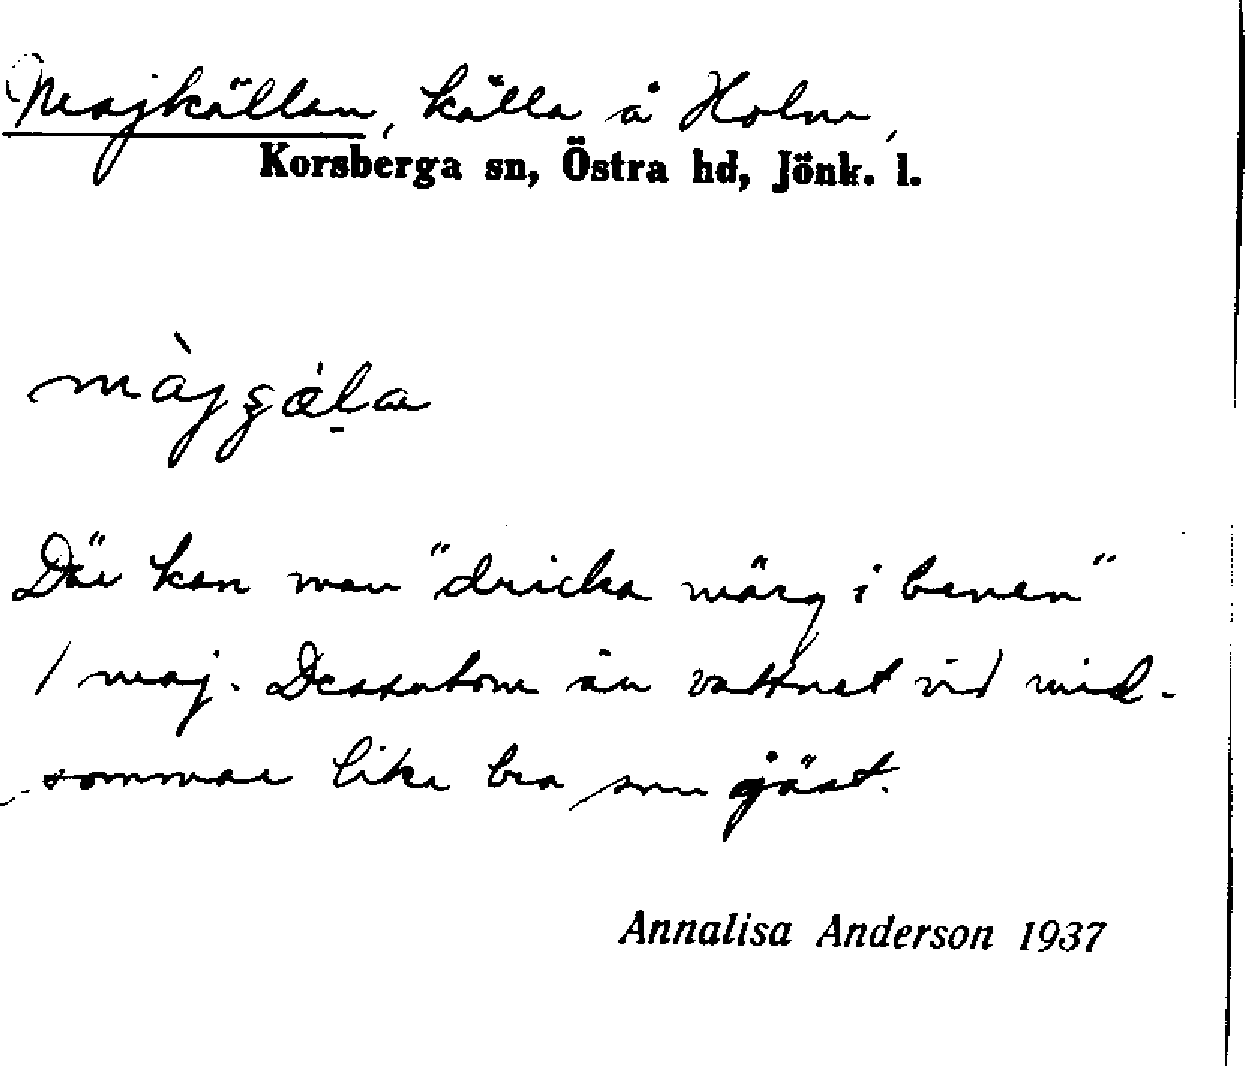 Majkällan, källa å Holm,
Korsberga sn, Östra hd, Jönk. l.
Där kan man "dricka märg i benen"
1 maj. Dessutom är vattnet vid mid-
sommar lika bra som jäst.
Annalisa Anderson 1937